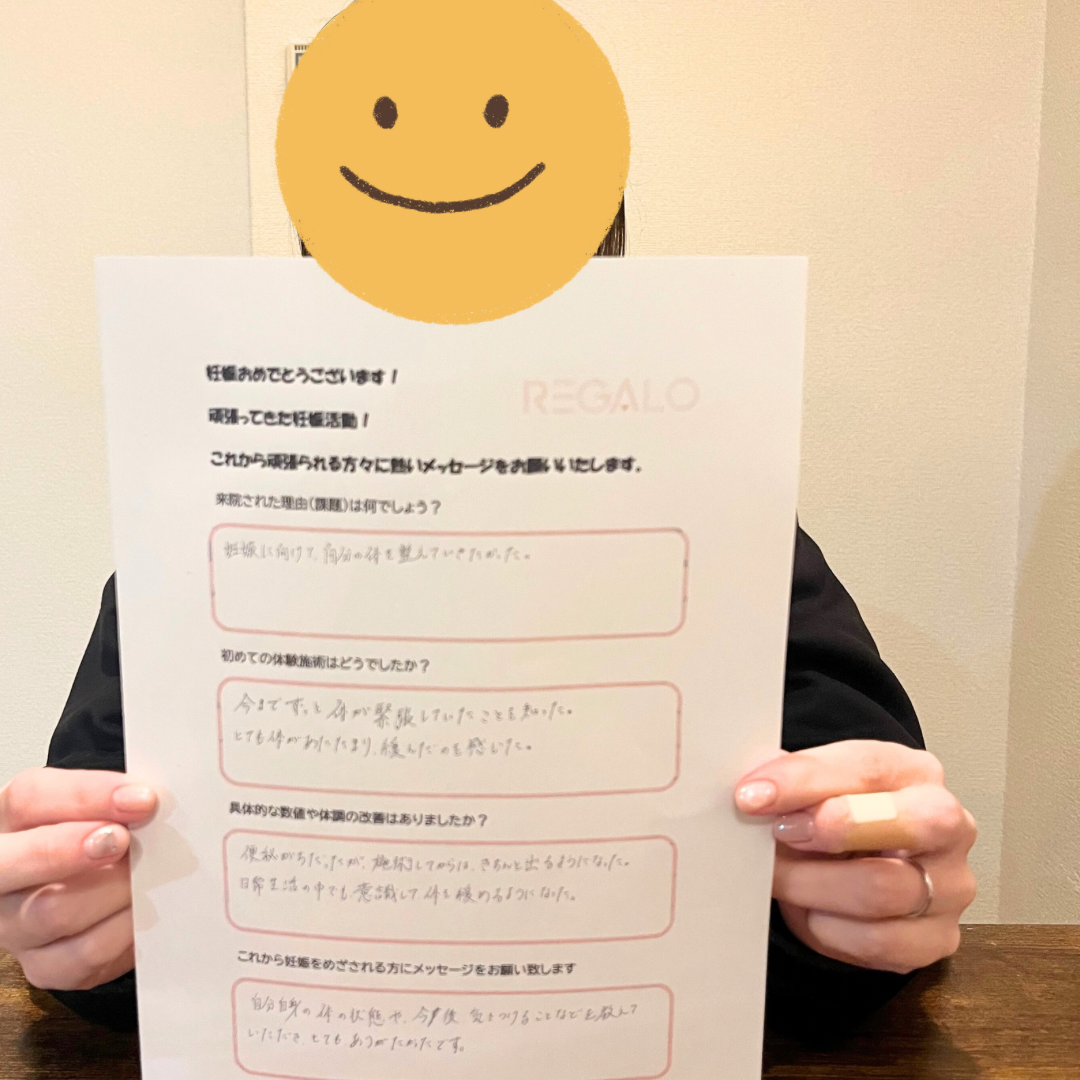 妊娠おめでとうございます！
REGALO
頑張ってきた妊娠活動！
これから頑張られる方々に熱いメッセージをお願いいたします。
来院された理由（課題）は何でしょう？
妊娠に向けて、自分の体を整えていきたかった。
初めての体験施術はどうでしたか？
今までずっと体が緊張していたことを知った。
とても体があたたまり、緩んだのを感じた。
具体的な数値や体調の改善はありましたか？
便秘がちだったが、施術してからは、きちんと出るようになった。
日常生活の中でも意識して体を緩めるようになった。
これから妊娠をめざされる方にメッセージをお願い致します
自分自身の体の状態や、今後気をつけることなどを教えて
いただき、とてもありがたかったです。